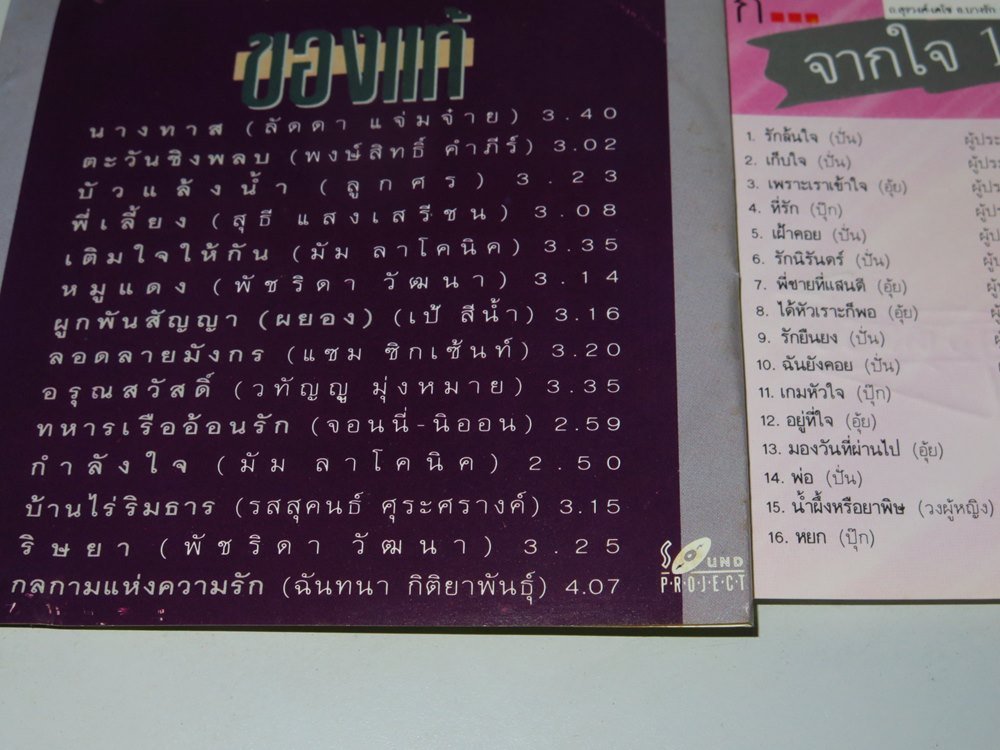 ของแท้
นางทาส (ลัดดา แจ่มจ๋าย) 3.40
ตะวันชิงพลบ (พงษ์สิทธิ์ คำภีร์) 3.02
บัวแล้งน้ำ (ลูกศร) 3.23
พี่เลี้ยง (สุธี แสงเสรีชน) 3.08
เติมใจให้กัน (มัม ลาโคนิค) 3.35
หมูแดง (พัชริดา วัฒนา) 3.14
ผูกพันสัญญา (ผยอง) (เป้ สีน้ำ) 3.16
ลอดลายมังกร (แซม ซิกเซ้นท์) 3.20
อรุณสวัสดิ์ (วทัญญู มุ่งหมาย) 3.35
ทหารเรืออ้อนรัก (จอนนี่-นิออน) 2.59
กำลังใจ (มัม ลาโคนิค) 2.50
บ้านไร่ริมธาร (รสสุคนธ์ ศุระศรางค์) 3.15
ริษยา (พัชริดา วัฒนา) 3.25
กลกามแห่งความรัก (ฉันทนา กิติยาพันธุ์) 4.07
SOUND
PROJECT
ถ.สุรวงศ์-เดโช อ.บางรัก
จากใจ 1
1. รักล้นใจ (ปั่น)
2. เก็บใจ (ปั่น)
3. เพราะเราเข้าใจ (อุ้ย)
4. ที่รัก (ปุ๊ก)
5. เฝ้าคอย (ปั่น)
6. รักนิรันดร์ (ปั่น)
7. พี่ชายที่แสนดี (อุ้ย)
8. ได้หัวเราะก็พอ (อุ้ย)
9. รักยืนยง (ปั่น)
10. ฉันยังคอย (ปั่น)
11. เกมหัวใจ (ปุ๊ก)
12. อยู่ที่ใจ (อุ้ย)
13. มองวันที่ผ่านไป (อุ้ย)
14. พ่อ (ปั่น)
15. น้ำผึ้งหรือยาพิษ (วงผู้หญิง)
16. หยก (ปุ๊ก)